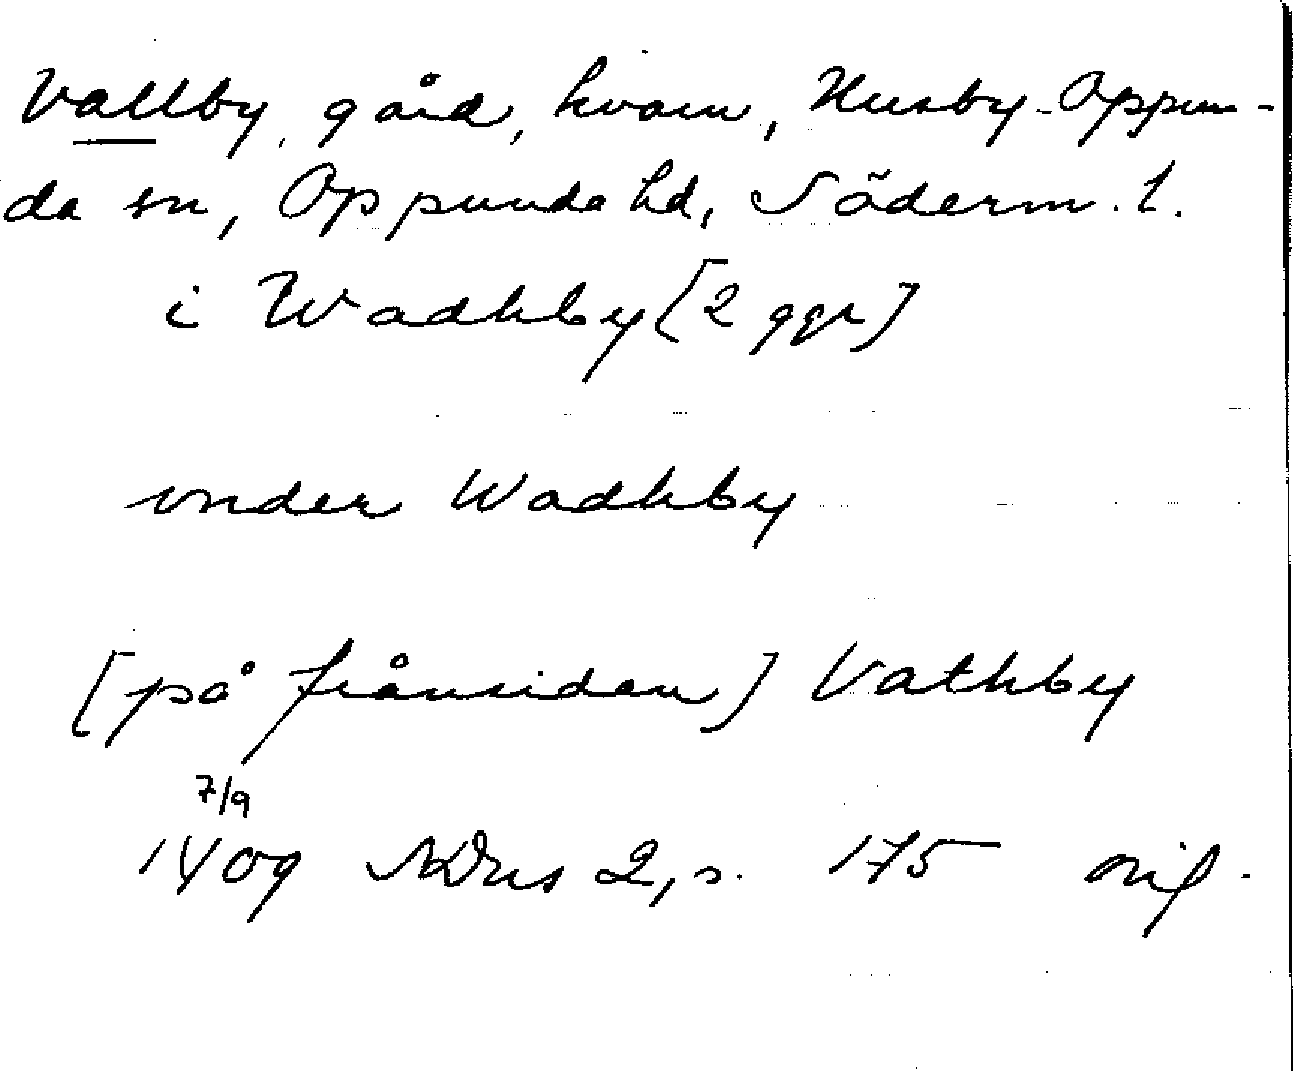 Vallby, gård, kvarn, Husby-Oppun-
da sn, Oppunda hd, Söderm. l.
i Wadhby [2 ggr]
vnder Wadhby
[på frånsidan] Vathby
7/9
1409 SDns 2, s. 175 orig.